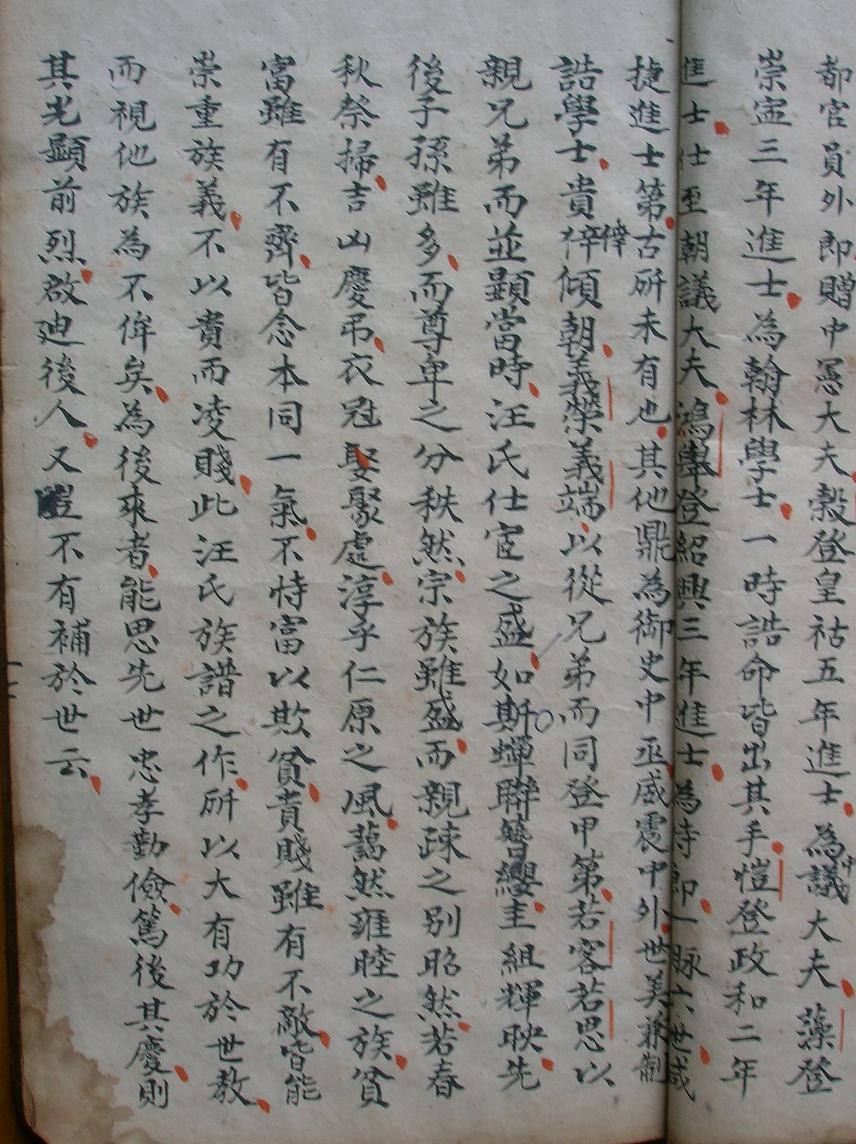 都官員外郎贈中憲大夫穀登皇祜五年進士為中議大夫藻登
崇寍三年進士為翰林學士一時誥命皆出其手愷登政和二年
進士仕至朝議大夫鴻舉登紹興三年進士為侍郎一脉六世咸
捷進士第古所未有也其他鼎為御史中丞威震中外世美兼制
誥學士貴倖傾朝義榮義端以從兄弟而同登甲第若容若思以
親兄弟而並顯當時汪氏仕宦之盛如斯蟬聯簪纓圭組輝映先
後子孫雖多而尊卑之分秩然宗族雖盛而親疎之別昭然若春
秋祭掃吉凶慶弔衣冠娶聚處淳乎仁原之風藹然雍睦之族貧
富雖有不齊皆念本同一氣不恃富以欺貧貴賤雖有不敵皆能
崇重族義不以貴而凌賤此汪氏族譜之作所以大有功於世教
而視他族為不侔矣為後來者能思先世忠孝勤儉篤後其慶則
其光顯前烈啟迪後人又豈不有補於世云